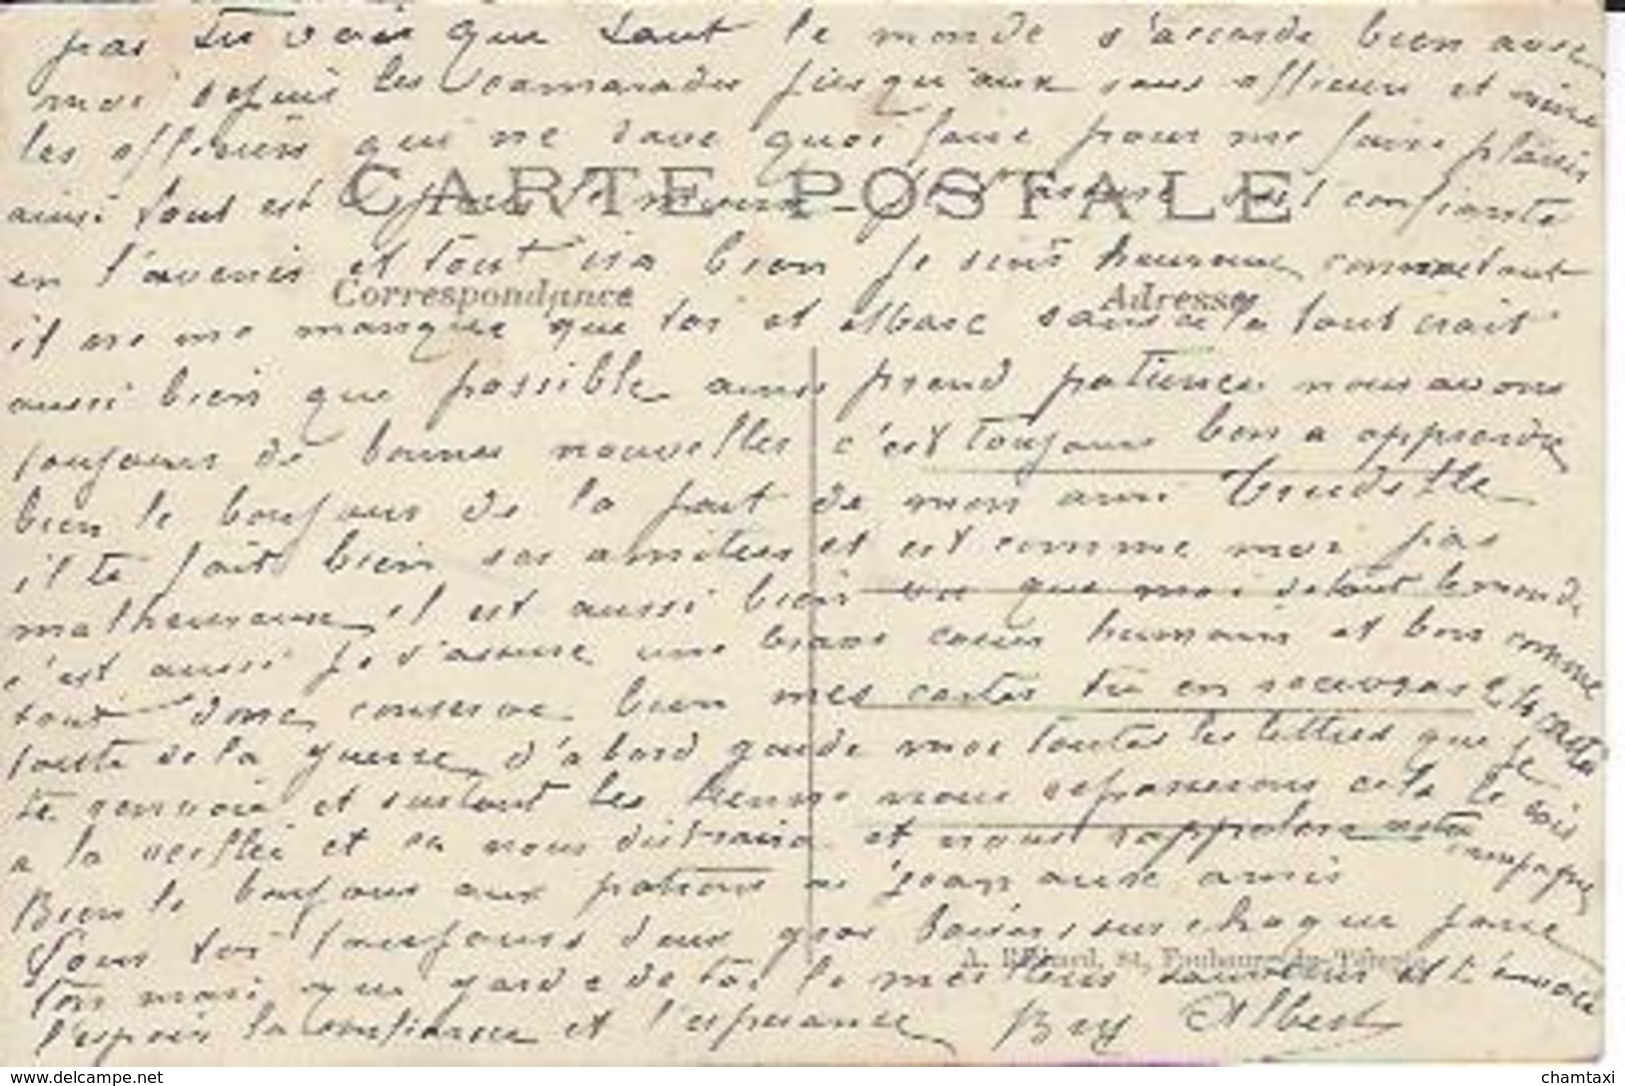 pas tu vois que tout le monde s'accorde bien avec
moi depuis les camarades jusqu'aux sous officiers et même
les officiers qui ne save quoi faire pour me faire plaisir
CARTE POSTALE
ainsi tout est pour le mieux je t'assure soit confiante
en l'avenir et tout ira bien je suis heureux maintenant
Correspondance Adresse
il ne me manque que toi et sans cela tout irait
aussi bien que possible ainsi prend patience nous avons
toujours de bonnes nouvelles c'est toujours bon a apprendre
bien le bonjour de la part de mon ami
il te fait bien ses amities et est comme moi pas
malheureux il est aussi bien vu que moi de tout le monde
c'est aussi je t'assure une brave coeur humain et bon comme
tout donc conserve bien mes cartes tu en recevras
toute de la guerre d'abord garde moi toutes les lettres que je
te renvoie et surtout les tiennes nous repasserons cela le soir
a la veillée et ça nous distraira et nous rappelera notre campagne
Bien le bonjour aux patrons a jean aux amis
Pour toi toujours deux gros baisers sur chaque joue
A. 84, Faubourg du Temple
ton mari que garde de toi le meilleur souvenir et t'envoie
l'espoir la confiance et l'espérance Bry Albert
www.delcampe.net chamtaxi